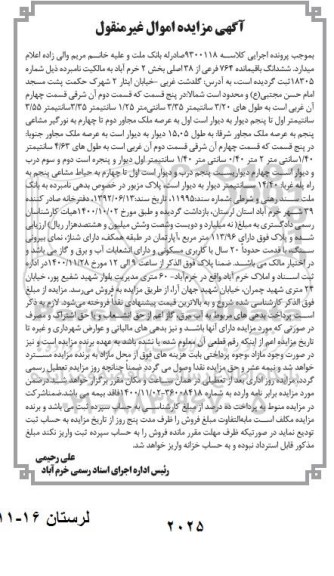 آگهی مزایده اموال غیرمنقول
بموجب پرونده اجرایی کلاسه ۹۳۰۰۱۱۸ صادرله بانک ملت و علیه خانم مریم والی زاده اعلام
میدارد. ششدانگ باقیمانده ۷۶۴ فرعی از ۳۸ اصلی بخش ۲ خرم آباد به مالکیت نامبرده ذیل شماره
۱۸۳۰۵ ثبت گردیده است، به آدرس: گلدشت غربی -خیابان ایثار ۲ شهرک حکمت پشت مسجد
امام حسن مجتبی(ع) و محدود است شمالا:در پنج قسمت که قسمت دوم آن شرقی قسمت چهارم
آن غربی است به طول های ۳/۲۰ سانتیمتر ۳/۳۵ سانتی‌متر ۱/۲۵ سانتیمتر ۳/۳۵ سانتیمتر ۳/۵۵
سانتیمتر اول تا پنجم دیوار به دیوار است اول به عرصه ملک مجاور دوم تا چهارم به نورگیر مشاعی
پنجم به عرصه ملک مجاور شرقا: به طول ۱۵،۰۵ دیوار به دیوار است به عرصه ملک مجاور جنوبا:
در پنج قسمت که قسمت چهارم آن شرقی قسمت دوم آن غربی است به طول های ۴/۶۳ سانتیمتر
۱/۴۰ سانتی متر ۲ متر ۰/۴۰ سانتی متر ۱/۴۰ سانتیمتر اول دیوار و پنجره است دوم و سوم درب
و دیوار است چهارم دیوار است پنجم درب و دیوار است اول تا چهارم به حیاط مشاعی پنجم به
راه پله غربا: ۱۴/۲۰ سانتیمتر دیوار به دیوار است، پلاک مزبور در خصوص بدهی نامبرده به بانک
ملت سند رهنی و شرطی شماره سند:۱۱۹۹۵، تاریخ سند:۱۳۹۲/۰۶/۱۳، دفترخانه صادر کننده
۳۹ شهر خرم آباد استان لرستان، بازداشت گردیده و طبق مورخ ۱۴۰۰/۱۰/۰۲ هیات کارشناسان
رسمی دادگستری به مبلغ
شده و پلاک فوق دارای ۱۱۳/۹۶ متر مربع ،آپارتمان در طبقه همکف، دارای شناژ، نمای بیرونی
سنگ، با قدمت حدوداً ۲۰ سال با کاربری مسکونی و دارای انشعابات آب و برق و گاز می باشد و
در اختیار مالک می باشند. ضمنا پلاک فوق الذکر از ساعت ۹ الی ۱۲ مورخ ۱۴۰۰/۱۱/۲۸ در اداره
ثبت اسناد و املاک خرم آباد واقع در خرم‌آباد- ۶۰ متری مدیریت بلوار شهید شفیع پور، خیابان
۲۴ متری شهید چمران، خیابان شهید جهان آرا، از طریق مزایده به فروش می‌رسد. مزایده از مبلغ
فوق الذکر کارشناسی شده شروع و به بالاترین قیمت پیشنهادی نقدا فروخته می‌شود. لازم به ذکر
است پرداخت بدهی های مربوط به آب، برق، گاز اعم از حق انشعاب و یا حق اشتراک و مصرف
در صورتی که مورد مزایده دارای آنها باشد و نیز بدهی های مالیاتی و عوارض شهرداری و غیره تا
تاریخ مزایده اعم از اینکه رقم قطعی آن معلوم شده یا نشده باشد به عهده برنده مزایده است و نیز
در صورت وجود مازاد ،وجوه پرداختی بابت هزینه های فوق از محل مازاد به برنده مزایده مسترد
خواهد شد و نیمه عشر و حق مزایده نقدا وصول می گردد ضمنا چنانچه روز مزایده تعطیل رسمی
گردد، مزایده روز اداری بعد از تعطیلی در همان ساعت و مکان مقرر برگزار خواهد شد.ضمن
مورد مزایده برابر نامه وارده به شماره ۳۶۰۰۸۴۱۸-۱۴۰۰/۱۱/۰۲ فاقد بیمه می باشد.ضمنا شرکت
در مزایده منوط به پرداخت ده درصد از مبلغ کارشناسی به حساب سپرده ثبت می باشد و برنده
مزایده مکلف است مابه‌التفاوت مبلغ فروش را ظرف مدت پنج روز از تاریخ مزایده به حساب ثبت
تودیع نماید در صورتیکه ظرف مهلت مقرر مانده فروش را به حساب سپرده ثبت واریز نکند مبلغ
مذکور قابل استرداد نبوده و به حساب خزانه واریز خواهد شد.
علی رحیمی
رئیس اداره اجرای اسناد رسمی خرم آباد
لرستان ۱۶-۱۱
۲۰۲۵